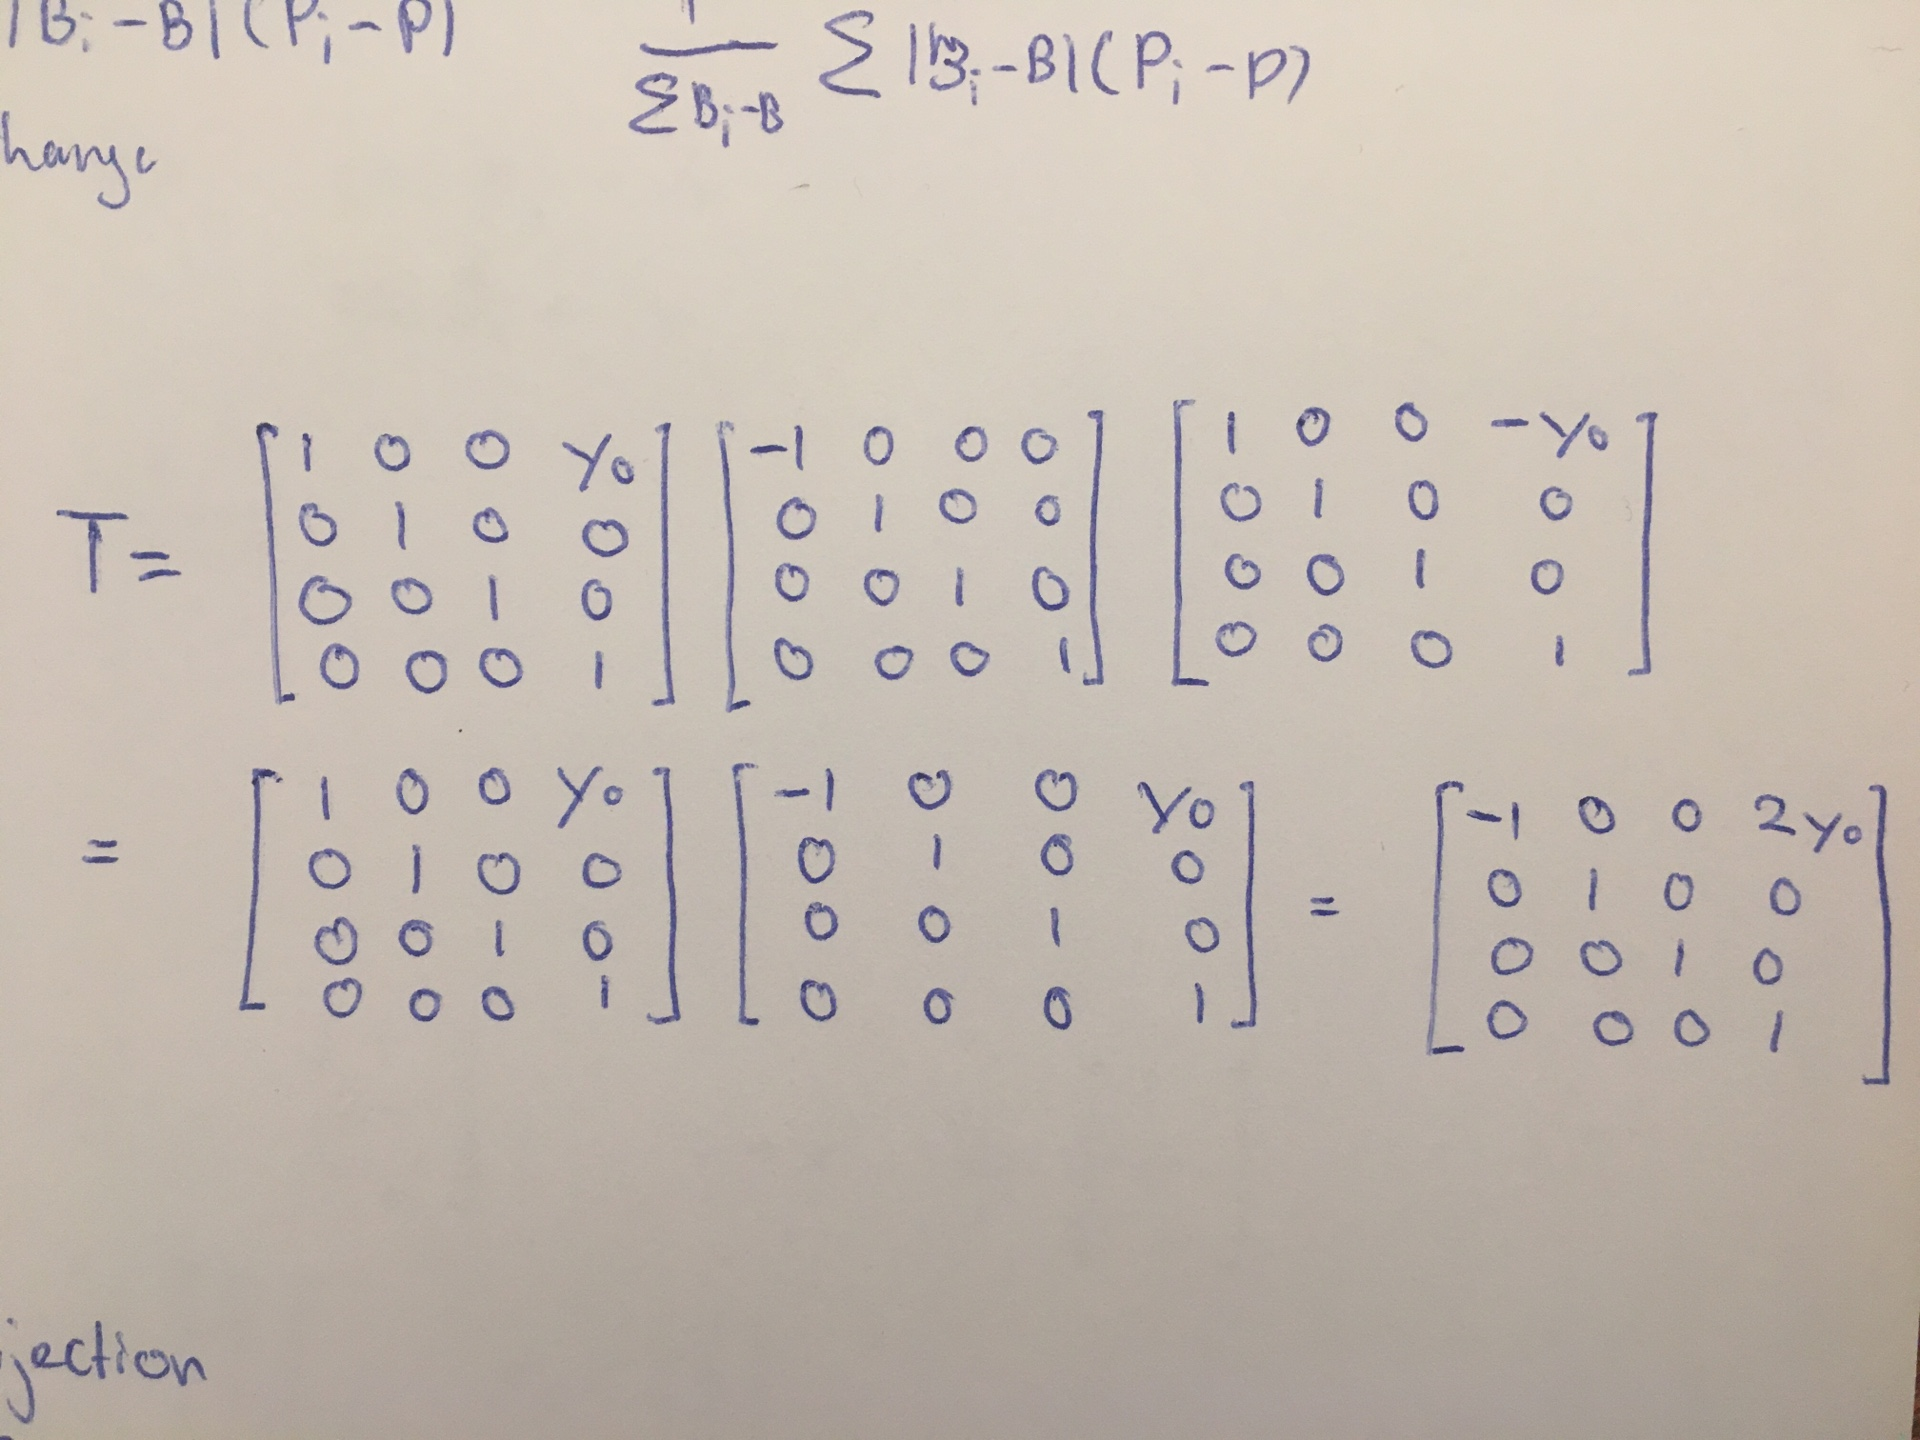 |Bᵢ-B|(Pᵢ-P) 1/ΣBᵢ-B Σ|Bᵢ-B|(Pᵢ-P)
hange
T= [1 0 0 Y₀; 0 1 0 0; 0 0 1 0; 0 0 0 1] [-1 0 0 0; 0 1 0 0; 0 0 1 0; 0 0 0 1] [1 0 0 -Y₀; 0 1 0 0; 0 0 1 0; 0 0 0 1]
= [1 0 0 Y₀; 0 1 0 0; 0 0 1 0; 0 0 0 1] [-1 0 0 Y₀; 0 1 0 0; 0 0 1 0; 0 0 0 1] = [-1 0 0 2Y₀; 0 1 0 0; 0 0 1 0; 0 0 0 1]
jection